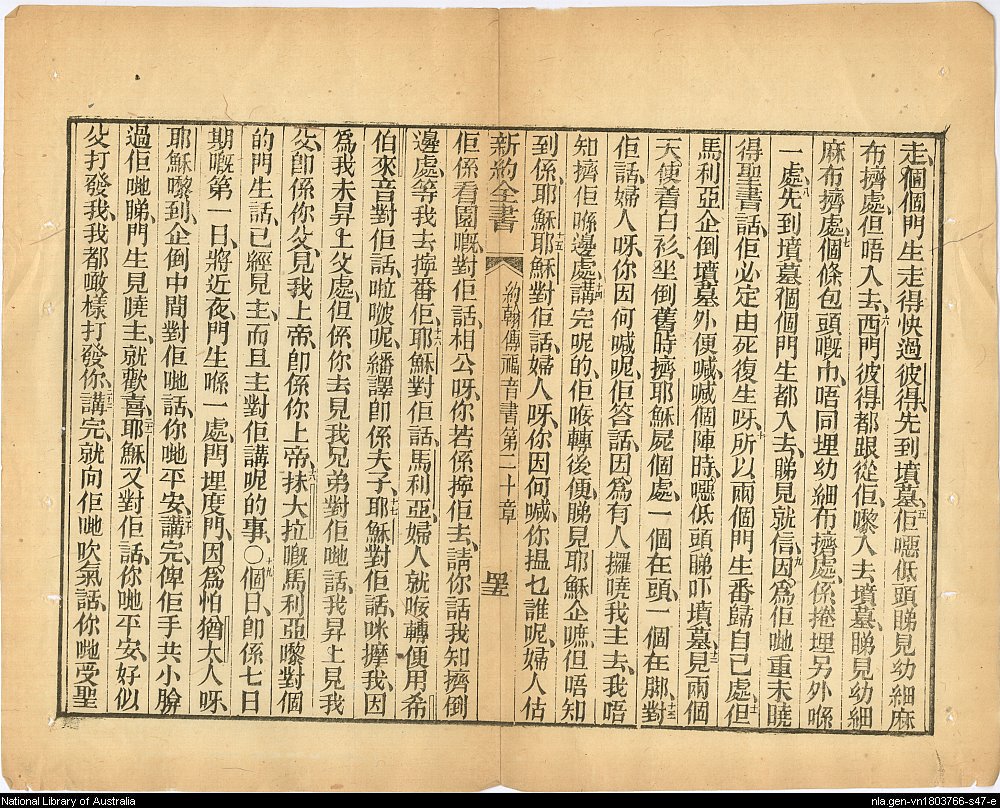 走、個個門生走得快過彼得、先到墳墓、五佢嗯低頭睇見幼細麻
布擠處、但唔入去、六西門彼得都跟從佢嚟、入去墳墓、睇見幼細
麻布擠處、七個條包頭嘅巾、唔同埋幼細布擠處、係捲埋另外喺
一處、八先到墳墓個個門生都入去、睇見就信、九因為佢哋重未曉
得聖書話、佢必定由死復生呀、十所以兩個門生番歸自己處、十一但
馬利亞企倒墳墓外便喊、喊個陣時、嗯低頭睇吓墳墓、十二見兩個
天使着白衫、坐倒舊時擠耶穌屍個處、一個在頭、一個在脚、十三對
佢話、婦人呀、你因何喊呢、佢答話、因為有人攞曉我主去、我唔
知擠佢喺邊處、十四講完呢的、佢𠴕轉後便、睇見耶穌企嚒、但唔知
到係耶穌、十五耶穌對佢話、婦人呀、你因何喊、你揾乜誰呢、婦人估
新約全書 約翰傳福音書第二十章 聖
佢係看園嘅、對佢話、相公呀、你若係擰佢去、請你話我知擠倒
邊處、等我去擰番佢、十六耶穌對佢話、馬利亞、婦人就𠴕轉便、用希
伯來音對佢話、啦啵呢、繙譯卽係夫子、十七耶穌對佢話、咪摩我、因
為我未昇上父處、但係你去見我兄弟對佢哋話、我昇上見我
父、卽係你父、見我上帝、卽係你上帝、十八抹大拉嘅馬利亞嚟對個
的門生話、已經見主、而且主對佢講呢的事、〇十九個日、卽係七日
期嘅第一日、將近夜、門生喺一處、閂埋度門、因為怕猶太人呀、
耶穌嚟到、企倒中間對佢哋話、你哋平安、二十講完、俾佢手共小脇
過佢哋睇、門生見曉主、就歡喜、二一耶穌又對佢話、你哋平安、好似
父打發我、我都噉樣打發你、二二講完、就向佢哋吹氣話、你哋受聖
National Library of Australia
nla.gen-vn1803766-s47-e